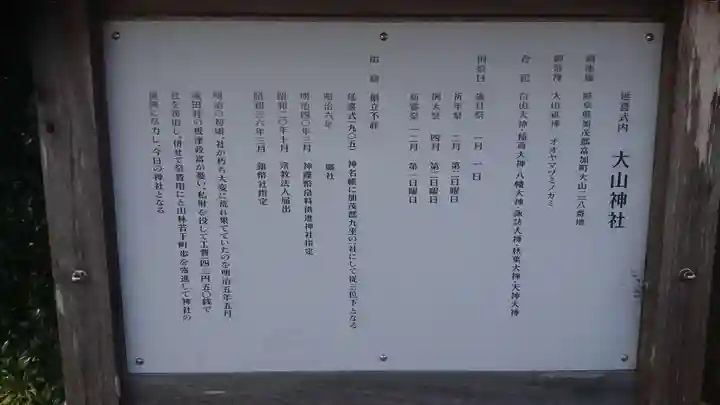 延喜式内 大山神社
鎮座地 岐阜県加茂郡富加町大山二八番地
御祭神 大山祇神 オオヤマヅミノカミ
合祀 白山大神・稲荷大神・八幡大神・諏訪大神・秋葉大神・天神大神
例祭日 歳旦祭 一月 一日
祈年祭 二月 第二日曜日
例大祭 四月 第二日曜日
新嘗祭 一二月 第一日曜日
由緒 創立不詳
延喜式(九〇五) 神名帳に加茂郡九座の一社にして従三位下となる
明治六年 郷社
明治四〇年三月 神饌幣帛料供進神社指定
昭和二〇年十月 宗教法人届出
昭和三六年三月 銀幣社指定
明治の初頃、社が朽ち大変に荒れ果てていたのを明治五年五月
滝田村の板津毅富が憂い、私財を投じて工費一四三円五〇銭で
社を復旧し、併せて祭費用にと山林若干町歩を寄進して神社の
復興に尽力し、今日の神社となる